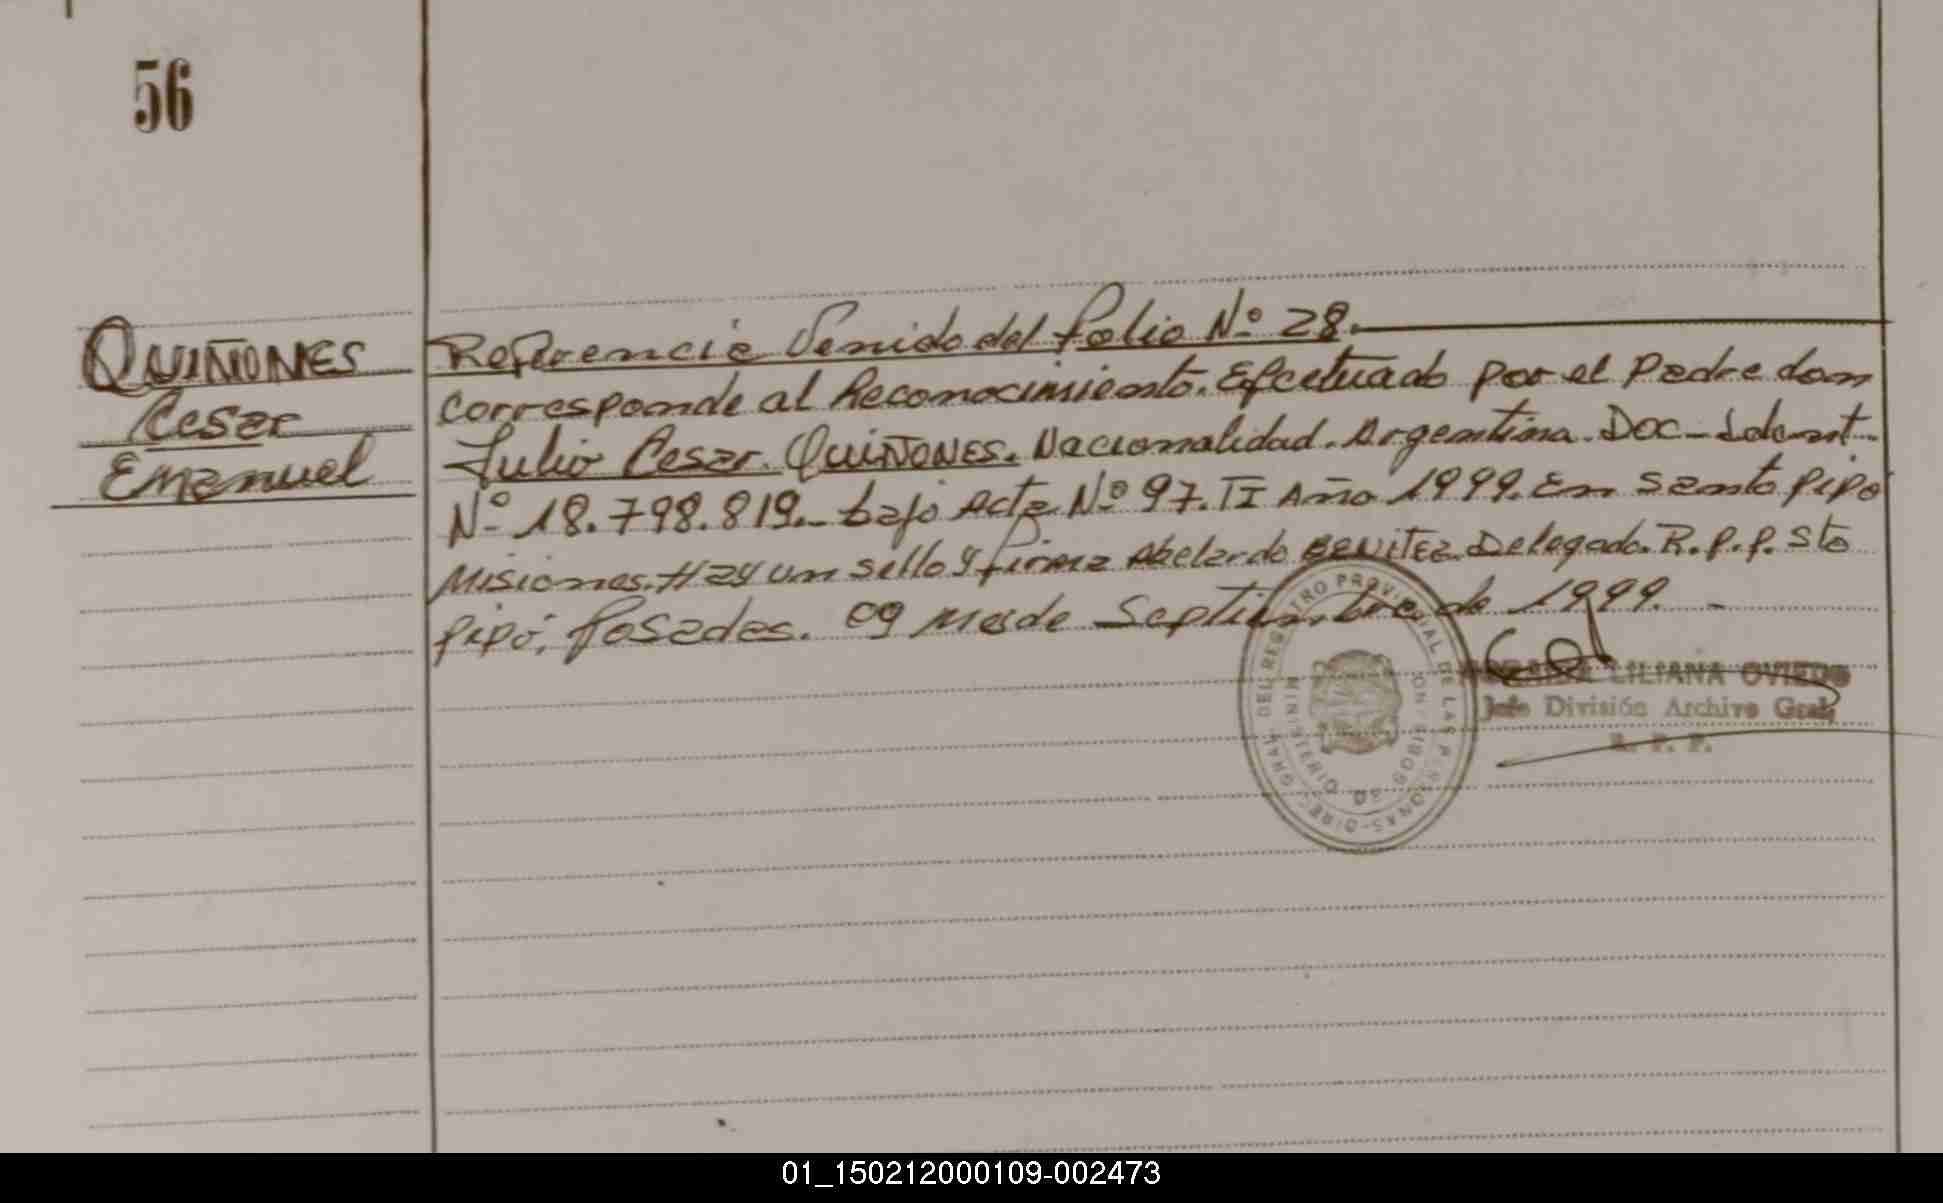 56
QUIÑONES
Cesar
Emanuel
Referencia Venido del folio Nº 28.
Corresponde al Reconocimiento. Efectuado por el Padre don
Julio Cesar. QUIÑONES. Nacionalidad. Argentina. Doc- Ident.
Nº 18.798.819.- bajo Acta Nº 97. TI Año 1999. En Santo Pipo
Misiones. Hay un sello y firma Abelardo BENITEZ. Delegado. R.P.P. Sto
Pipó, Posadas. 09 Mes de Septiembre de 1999. -
LILIANA OVIEDO
Jefe División Archivo Gral,
R. P. P.
REGISTRO PROVINCIAL DE LAS PERSONAS-DIREC. GRAL. DEL
MINISTERIO DE GOBIERNO
01_150212000109-002473